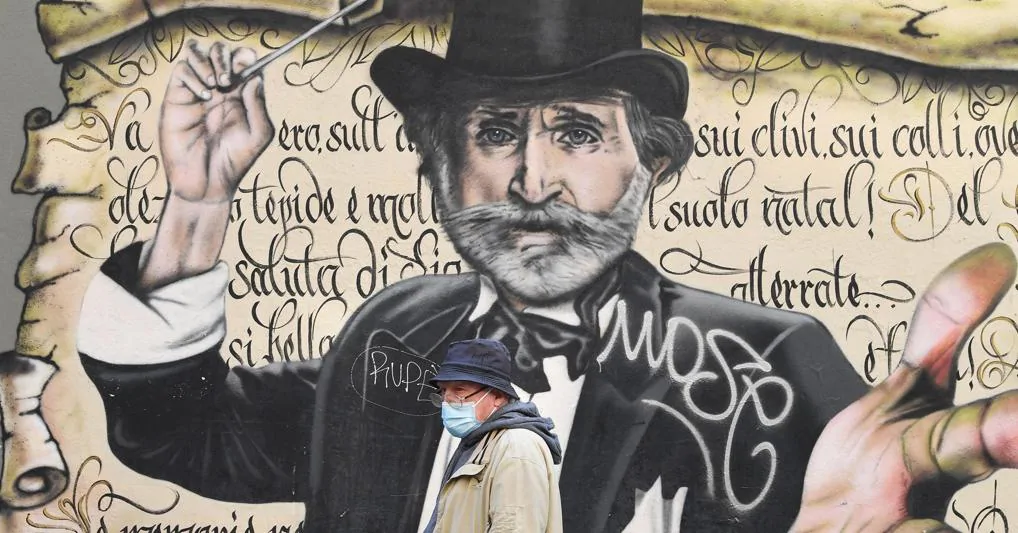 Va ero, sull'a sui clivi, sui colli, ove
olez o tepide e moll l suolo natal! Del
saluta di Sio atterrate...
si bella